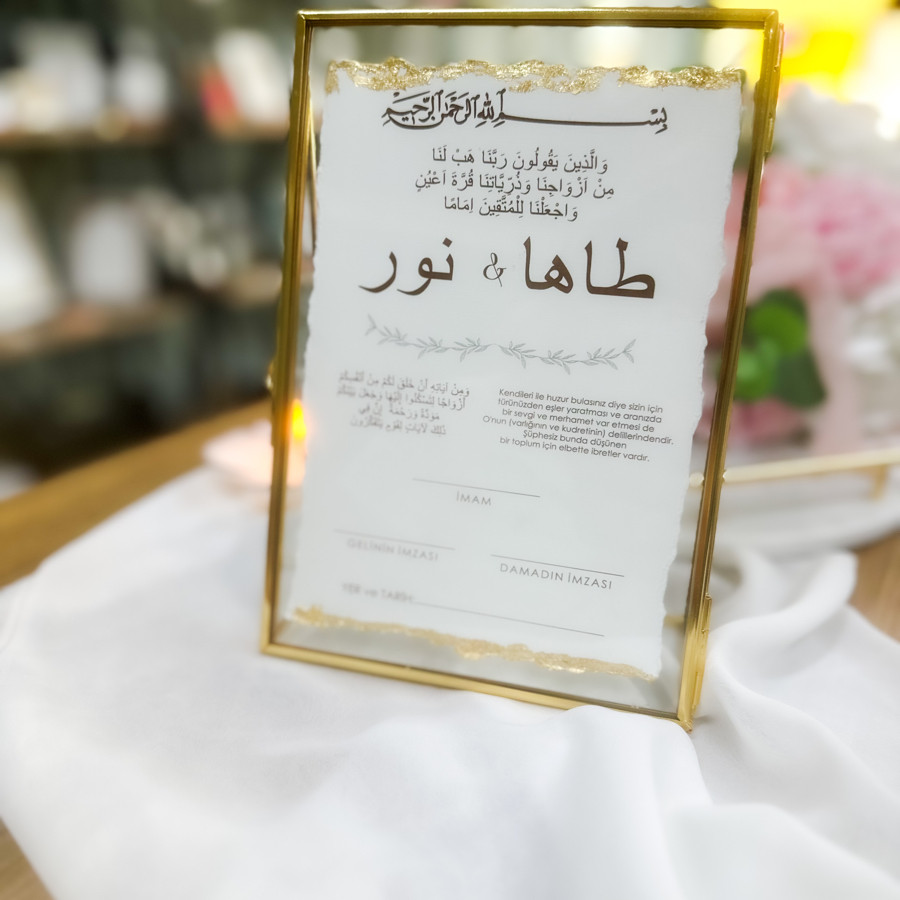 بِسْمِ اللهِ الرَّحْمٰنِ الرَّحِيْمِ
وَالَّذِينَ يَقُولُونَ رَبَّنَا هَبْ لَنَا
مِنْ اَزْوَاجِنَا وَذُرِّيَّاتِنَا قُرَّةَ اَعْيُنٍ
وَاجْعَلْنَا لِلْمُتَّقِينَ اِمَامًا
طاها & نور
وَمِنْ آيَاتِهِ أَنْ خَلَقَ لَكُمْ مِنْ أَنْفُسِكُمْ
أَزْوَاجًا لِتَسْكُنُوا إِلَيْهَا وَجَعَلَ بَيْنَكُمْ
مَوَدَّةً وَرَحْمَةً إِنَّ فِي
ذَلِكَ لَآيَاتٍ لِقَوْمٍ يَتَفَكَّرُونَ
Kendileri ile huzur bulasınız diye sizin için
türünüzden eşler yaratması ve aranızda
bir sevgi ve merhamet var etmesi de
O'nun (varlığının ve kudretinin) delillerindendir.
Şüphesiz bunda düşünen
bir toplum için elbette ibretler vardır.
İMAM
GELİNİN İMZASI
DAMADIN İMZASI
YER ve TARİH